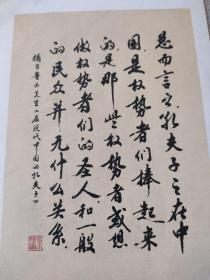 总而言之,孔夫子之在中
国,是权势者们捧起来
的,是那些权势者或想
做权势者们的圣人,和一般
的民众并无什么关系。
摘自鲁迅先生《在现代中国的孔夫子》